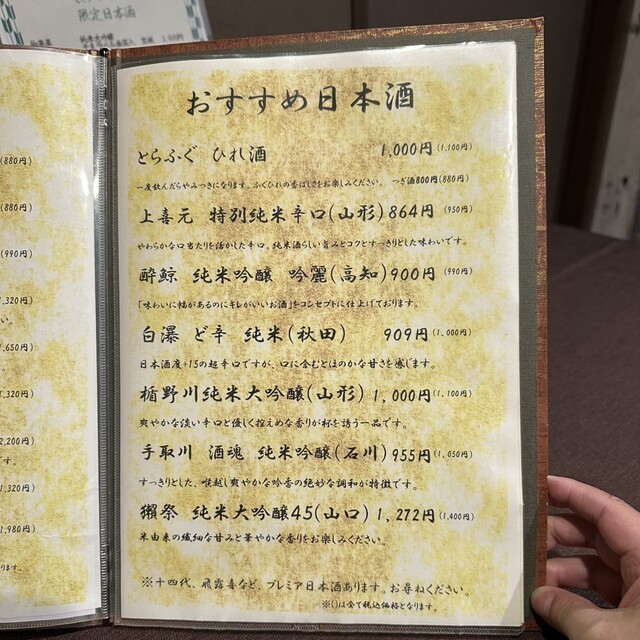 限定日本酒
(880円)
(880円)
(990円)
,320円)
い。
,650円)
,320円)
2,200円)
す。
,320円)
,980円)
ります。
おすすめ日本酒
とらふぐ ひれ酒 1,000円(1,100円)
一度飲んだらやみつきになります。ふぐひれの香ばしさをお楽しみください。 つぎ酒800円(880円)
上喜元 特別純米辛口(山形)864円(950円)
やわらかな口当たりを活かした辛口。純米酒らしい旨みとコクとすっきりとした味わいです。
酔鯨 純米吟醸 吟麗(高知)900円(990円)
「味わいに幅があるのにキレがいいお酒」をコンセプトに仕上げております。
白瀑 ど辛 純米(秋田) 909円(1,000円)
日本酒度+15の超辛口ですが、口に含むとほのかな甘さを感じます。
楯野川純米大吟醸(山形)1,000円(1,100円)
爽やかな淡い辛口と優しく控えめな香りが杯を誘う一品です。
手取川 酒魂 純米吟醸(石川)955円(1,050円)
すっきりとした、喉越し爽やかな吟香の絶妙な調和が特徴です。
獺祭 純米大吟醸45(山口)1,272円(1,400円)
米由来の繊細な甘みと華やかな香りをお楽しみください。
※十四代、飛露喜など、プレミア日本酒あります。お尋ねください。
※()は全て税込価格となります。